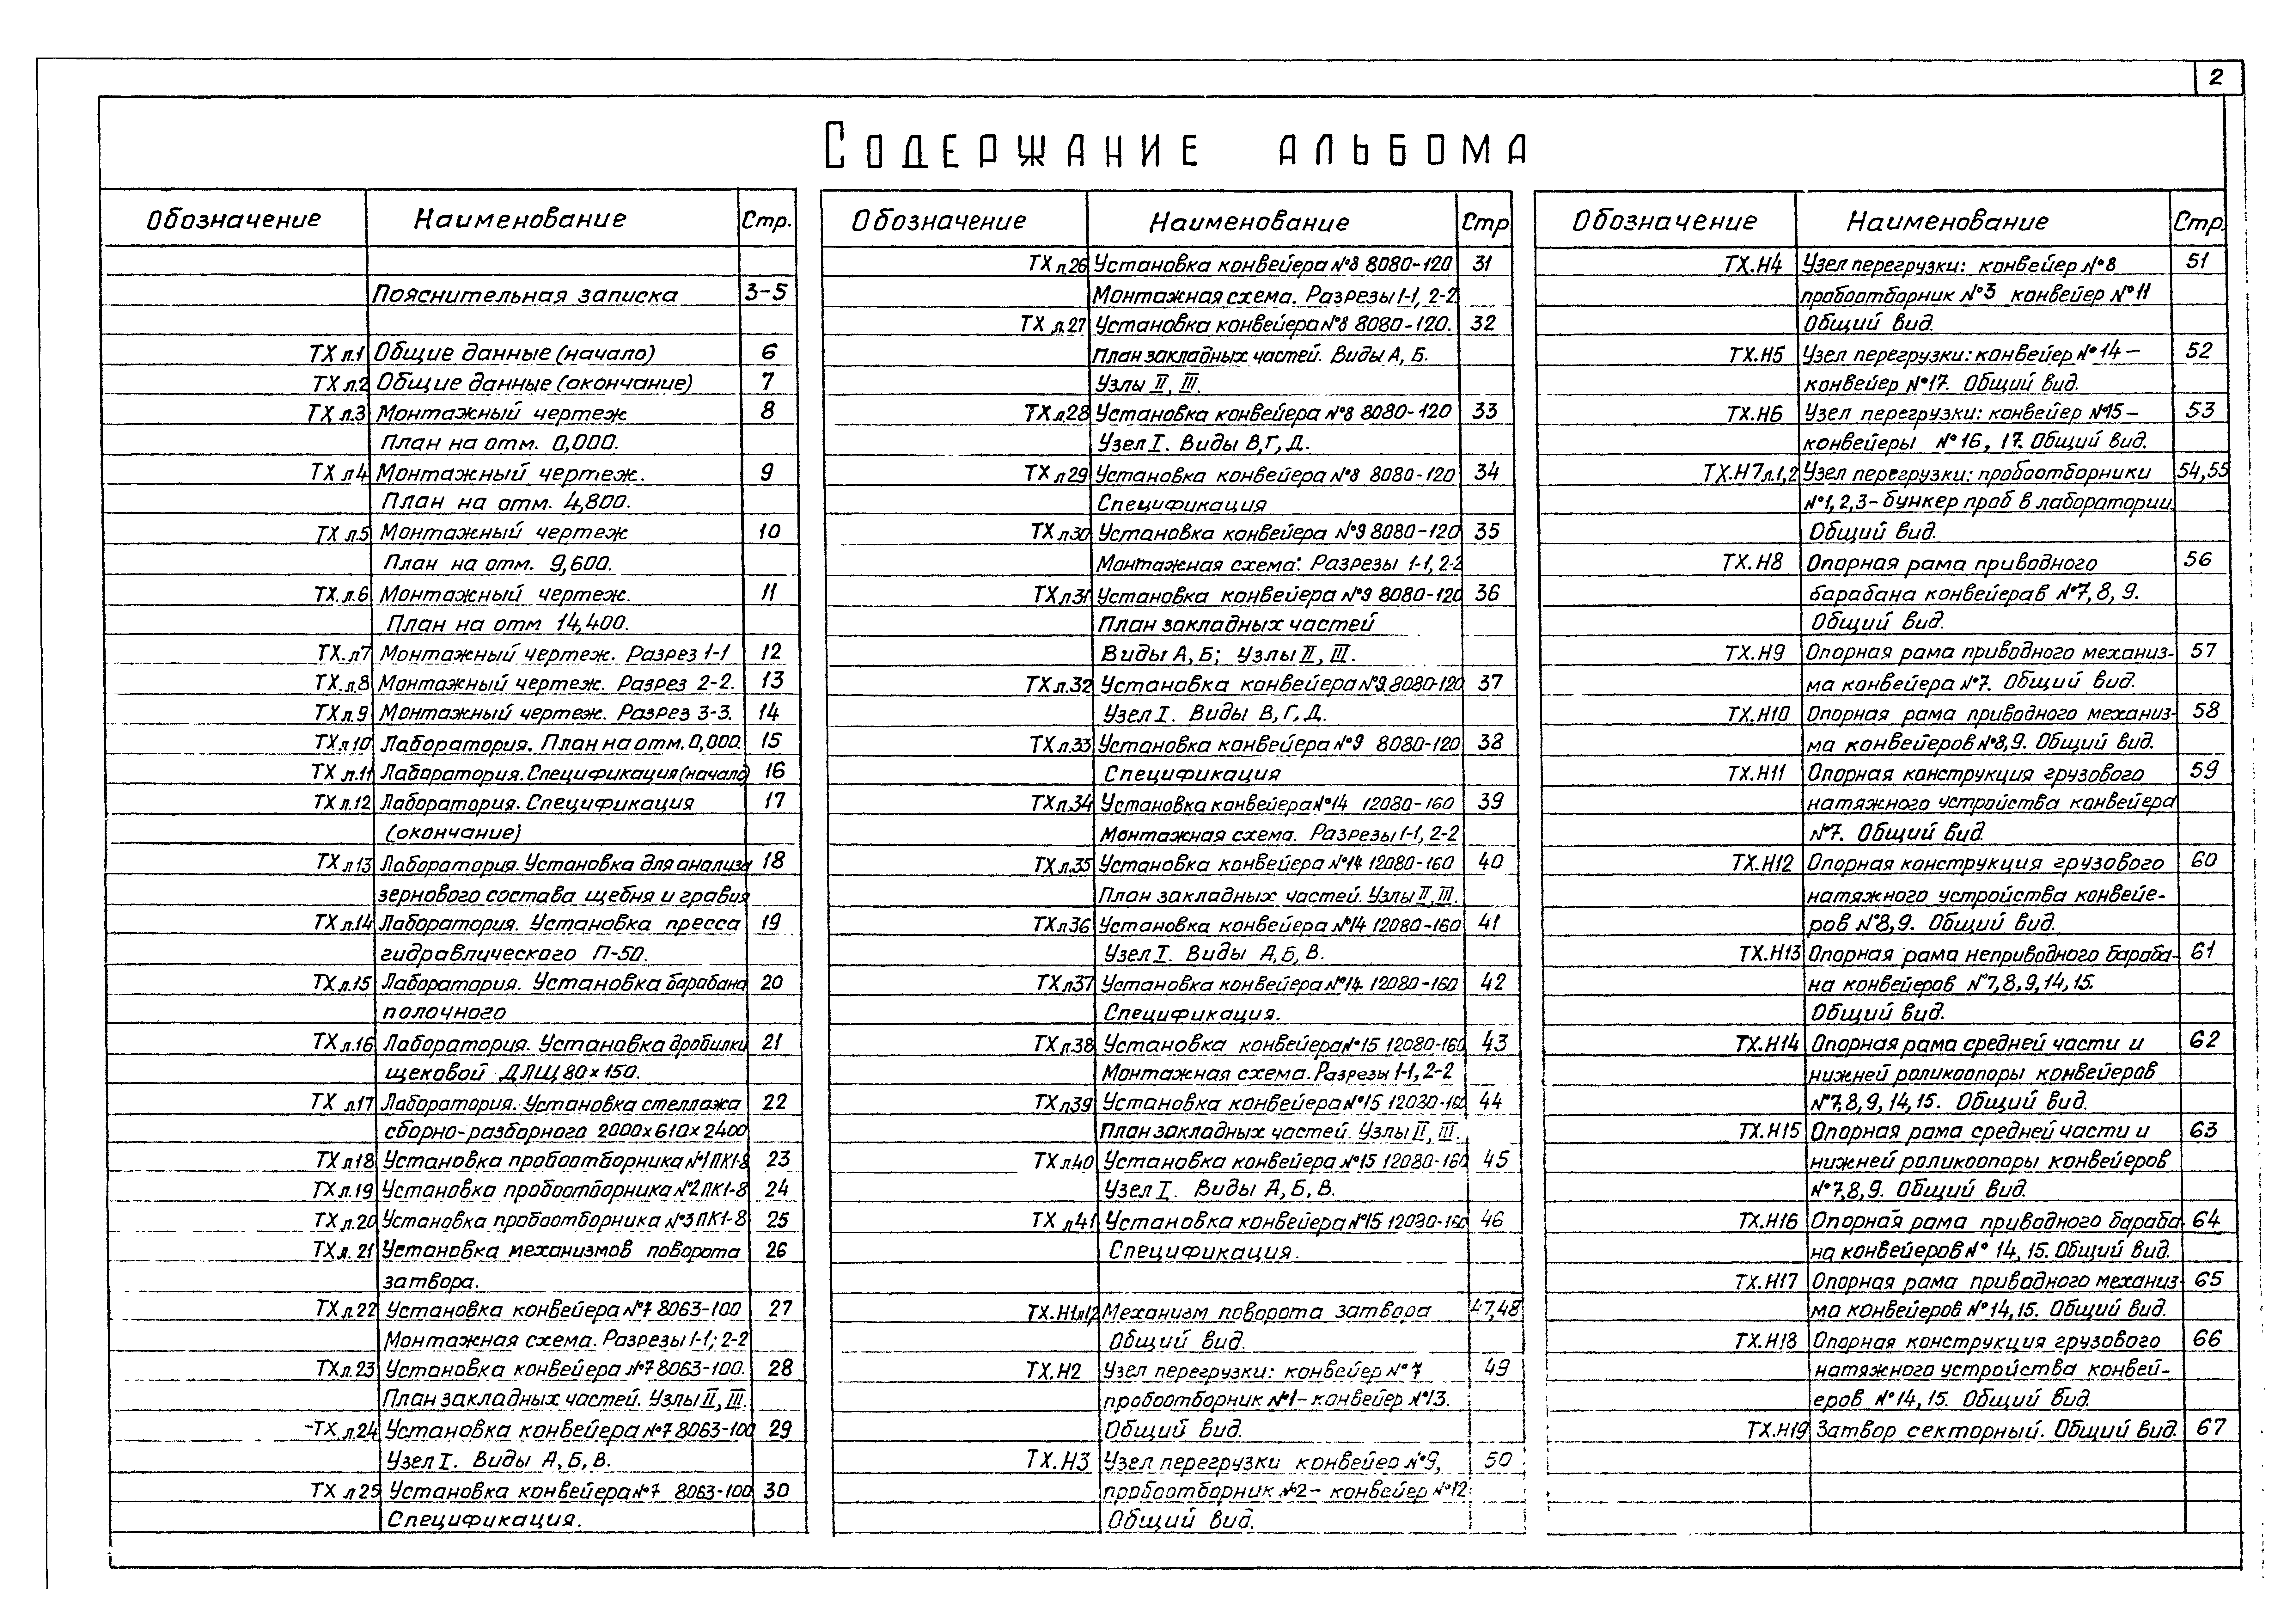 2
Содержание альбома
Обозначение Наименование Стр.
Пояснительная записка 3-5
ТХ л.1 Общие данные (начало) 6
ТХ л.2 Общие данные (окончание) 7
ТХ л.3 Монтажный чертеж 8
План на отм. 0,000.
ТХ л4 Монтажный чертеж. 9
План на отм. 4,800.
ТХ л.5 Монтажный чертеж 10
План на отм. 9,600.
ТХ.л.6 Монтажный чертеж. 11
План на отм 14,400.
ТХ.л7 Монтажный чертеж. Разрез 1-1 12
ТХ.л.8 Монтажный чертеж. Разрез 2-2. 13
ТХ л.9 Монтажный чертеж. Разрез 3-3. 14
ТХ л10 Лаборатория. План на отм. 0,000. 15
ТХ л.11 Лаборатория. Спецификация (начало) 16
ТХ л.12 Лаборатория. Спецификация 17
(окончание)
ТХ л13 Лаборатория. Установка для анализа 18
зернового состава щебня и гравия
ТХ л.14 Лаборатория. Установка пресса 19
гидравлического П-50.
ТХ л.15 Лаборатория. Установка барабана 20
полочного
ТХ л.16 Лаборатория. Установка дробилки 21
щековой ДЛЩ 80х150.
ТХ л.17 Лаборатория. Установка стеллажа 22
сборно-разборного 2000х610х2400
ТХ л18 Установка пробоотборника №1 ПК1-8 23
ТХ л.19 Установка пробоотборника №2 ПК1-8 24
ТХ л.20 Установка пробоотборника №3 ПК1-8 25
ТХ л. 21 Установка механизмов поворота 26
затвора.
ТХ л.22 Установка конвейера №7 8063-100 27
Монтажная схема. Разрезы 1-1; 2-2
ТХ л.23 Установка конвейера №7 8063-100. 28
План закладных частей. Узлы II, III.
ТХ л.24 Установка конвейера №7 8063-100 29
Узел I. Виды А, Б, В.
ТХ л 25 Установка конвейера №7 8063-100 30
Спецификация.
Обозначение Наименование Стр
ТХ л.26 Установка конвейера №8 8080-120 31
Монтажная схема. Разрезы 1-1, 2-2
ТХ л.27 Установка конвейера №8 8080-120. 32
План закладных частей. Виды А, Б.
Узлы II, III.
ТХ л.28 Установка конвейера №8 8080-120 33
Узел I. Виды В, Г, Д.
ТХ л29 Установка конвейера №8 8080-120 34
Спецификация
ТХ л30 Установка конвейера №9 8080-120 35
Монтажная схема. Разрезы 1-1, 2-2
ТХ л31 Установка конвейера №9 8080-120 36
План закладных частей
Виды А, Б; Узлы II, III.
ТХ л.32 Установка конвейера №9. 8080-120 37
Узел I. Виды В, Г, Д.
ТХ л.33 Установка конвейера №9 8080-120 38
Спецификация
ТХ л.34 Установка конвейера №14 12080-160 39
Монтажная схема. Разрезы 1-1, 2-2
ТХ л.35 Установка конвейера №14 12080-160 40
План закладных частей. Узлы II, III.
ТХ л36 Установка конвейера №14 12080-160 41
Узел I. Виды А, Б, В.
ТХ л37 Установка конвейера №14 12080-160 42
Спецификация.
ТХ л.38 Установка конвейера №15 12080-160 43
Монтажная схема. Разрезы 1-1, 2-2
ТХ л39 Установка конвейера №15 12080-160 44
План закладных частей. Узлы II, III.
ТХ л40 Установка конвейера №15 12080-160 45
Узел I. Виды А, Б, В.
ТХ л41 Установка конвейера №15 12080-160 46
Спецификация.
ТХ.Н1л1,2 Механизм поворота затвора 47,48
Общий вид.
ТХ.Н2 Узел перегрузки: конвейер №7 49
пробоотборник №1- конвейер №13.
Общий вид.
ТХ.Н3 Узел перегрузки конвейер №9, 50
пробоотборник №2- конвейер №12
Общий вид.
Обозначение Наименование Стр.
ТХ.Н4 Узел перегрузки: конвейер №8 51
пробоотборник №3 конвейер №11
Общий вид.
ТХ.Н5 Узел перегрузки: конвейер №14- 52
конвейер №17. Общий вид.
ТХ.Н6 Узел перегрузки: конвейер №15- 53
конвейеры №16, 17. Общий вид.
ТХ.Н7л.1,2 Узел перегрузки: пробоотборники 54,55
№1,2,3- бункер проб в лаборатории.
Общий вид.
ТХ.Н8 Опорная рама приводного 56
барабана конвейеров №7, 8, 9.
Общий вид.
ТХ.Н9 Опорная рама приводного механиз- 57
ма конвейера №7. Общий вид.
ТХ.Н10 Опорная рама приводного механиз- 58
ма конвейеров №8,9. Общий вид.
ТХ.Н11 Опорная конструкция грузового 59
натяжного устройства конвейера
№7. Общий вид.
ТХ.Н12 Опорная конструкция грузового 60
натяжного устройства конвейе-
ров №8,9. Общий вид.
ТХ.Н13 Опорная рама неприводного бараба- 61
на конвейеров №7,8,9,14,15.
Общий вид.
ТХ.Н14 Опорная рама средней части и 62
нижней роликоопоры конвейеров
№7,8,9,14,15. Общий вид.
ТХ.Н15 Опорная рама средней части и 63
нижней роликоопоры конвейеров
№7,8,9. Общий вид.
ТХ.Н16 Опорная рама приводного бараба 64
на конвейеров №14, 15. Общий вид.
ТХ.Н17 Опорная рама приводного механиз- 65
ма конвейеров №14,15. Общий вид.
ТХ.Н18 Опорная конструкция грузового 66
натяжного устройства конвей-
еров №14, 15. Общий вид.
ТХ.Н19 Затвор секторный. Общий вид. 67